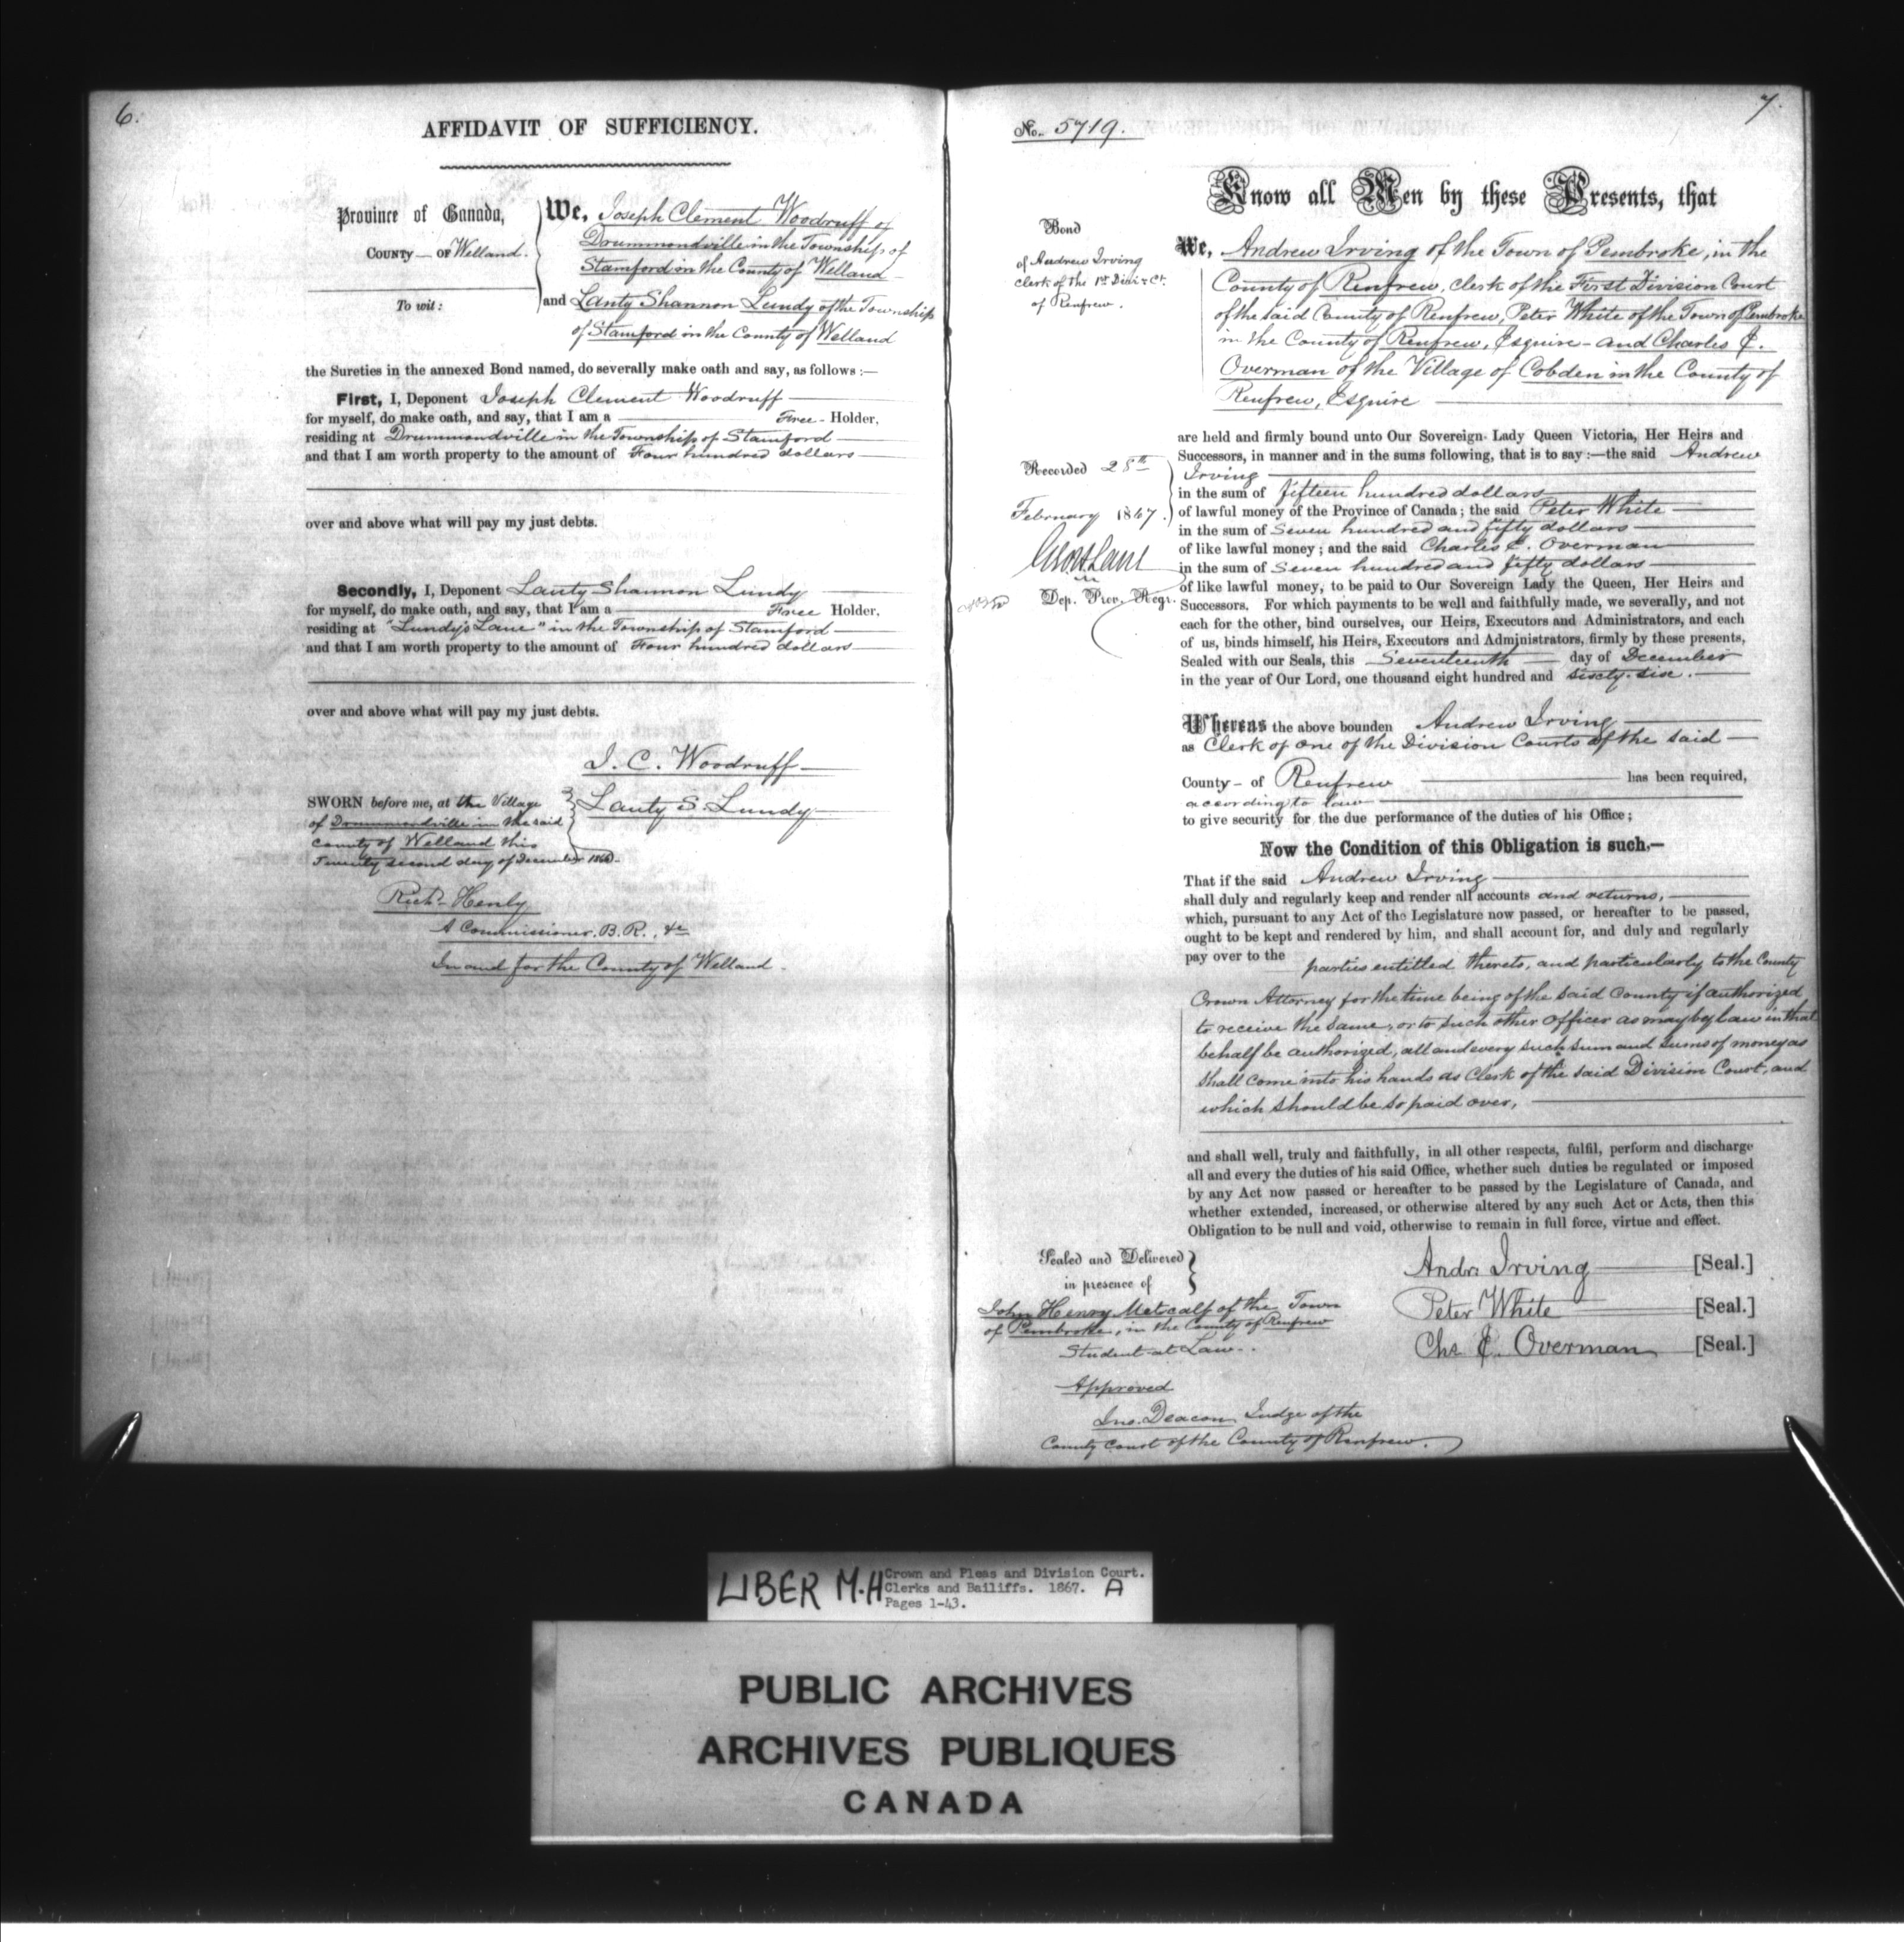 6.
AFFIDAVIT OF SUFFICIENCY.
Province of Canada,
County — of Welland.
To wit:
We, Joseph Clement Woodruff of
Drummondville in the Township of
Stamford in the County of Welland
and Lanty Shannon Lundy of the Township
of Stamford in the County of Welland
the Sureties in the annexed Bond named, do severally make oath and say, as follows :—
First, I, Deponent Joseph Clement Woodruff
for myself, do make oath, and say, that I am a Free - Holder,
residing at Drummondville in the Township of Stamford
and that I am worth property to the amount of Four hundred dollars
over and above what will pay my just debts.
Secondly, I, Deponent Lanty Shannon Lundy
for myself, do make oath, and say, that I am a Free Holder,
residing at "Lundy's Lane" in the Township of Stamford
and that I am worth property to the amount of Four hundred dollars
over and above what will pay my just debts.
J. C. Woodruff
Lanty S. Lundy
SWORN before me, at the Village
of Drummondville in the said
County of Welland this
Twenty second day of December 1866.
Richd Henly
A Commissioner. B.R., &c
In and for the County of Welland.
7.
No. 5719.
Know all Men by these Presents, that
Bond
of Andrew Irving
Clerk of the 1st Divn Ct.
of Renfrew.
We, Andrew Irving of the Town of Pembroke, in the
County of Renfrew, Clerk of the First Division Court
of the said County of Renfrew, Peter White of the Town of Pembroke
in the County of Renfrew, Esquire - and Charles C.
Overman of the Village of Cobden in the County of
Renfrew, Esquire
are held and firmly bound unto Our Sovereign Lady Queen Victoria, Her Heirs and
Successors, in manner and in the sums following, that is to say :—the said Andrew
Irving
in the sum of fifteen hundred dollars
of lawful money of the Province of Canada; the said Peter White
in the sum of Seven hundred and fifty dollars
of like lawful money; and the said Charles C. Overman
in the sum of Seven hundred and fifty dollars
of like lawful money, to be paid to Our Sovereign Lady the Queen, Her Heirs and
Successors. For which payments to be well and faithfully made, we severally, and not
each for the other, bind ourselves, our Heirs, Executors and Administrators, and each
of us, binds himself, his Heirs, Executors and Administrators, firmly by these presents,
Sealed with our Seals, this Seventeenth day of December
in the year of Our Lord, one thousand eight hundred and sixty-six.
Recorded 28th
February 1867.
Dep. Prov. Regr.
Whereas the above bounden Andrew Irving
as Clerk of one of the Division Courts of the said
County - of Renfrew has been required,
according to law
to give security for the due performance of the duties of his Office;
Now the Condition of this Obligation is such.—
That if the said Andrew Irving
shall duly and regularly keep and render all accounts and returns,
which, pursuant to any Act of the Legislature now passed, or hereafter to be passed,
ought to be kept and rendered by him, and shall account for, and duly and regularly
pay over to the parties entitled thereto, and particularly to the County
Crown Attorney for the time being of the said County if authorized
to receive the same, or to such other officer as may by law in that
behalf be authorized, all and every such sum and sums of money as
shall come into his hands as Clerk of the said Division Court, and
which should be so paid over,
and shall well, truly and faithfully, in all other respects, fulfil, perform and discharge
all and every the duties of his said Office, whether such duties be regulated or imposed
by any Act now passed or hereafter to be passed by the Legislature of Canada, and
whether extended, increased, or otherwise altered by any such Act or Acts, then this
Obligation to be null and void, otherwise to remain in full force, virtue and effect.
Sealed and Delivered
in presence of
John Henry Metcalf of the Town
of Pembroke, in the County of Renfrew
Student-at-Law.
Andw Irving [Seal.]
Peter White [Seal.]
Chs C. Overman [Seal.]
Approved
Jno. Deacon Judge of the
County Court of the County of Renfrew.
LIBER M.H
Crown and Pleas and Division Court.
Clerks and Bailiffs. 1867. A
Pages 1-43.
PUBLIC ARCHIVES
ARCHIVES PUBLIQUES
CANADA